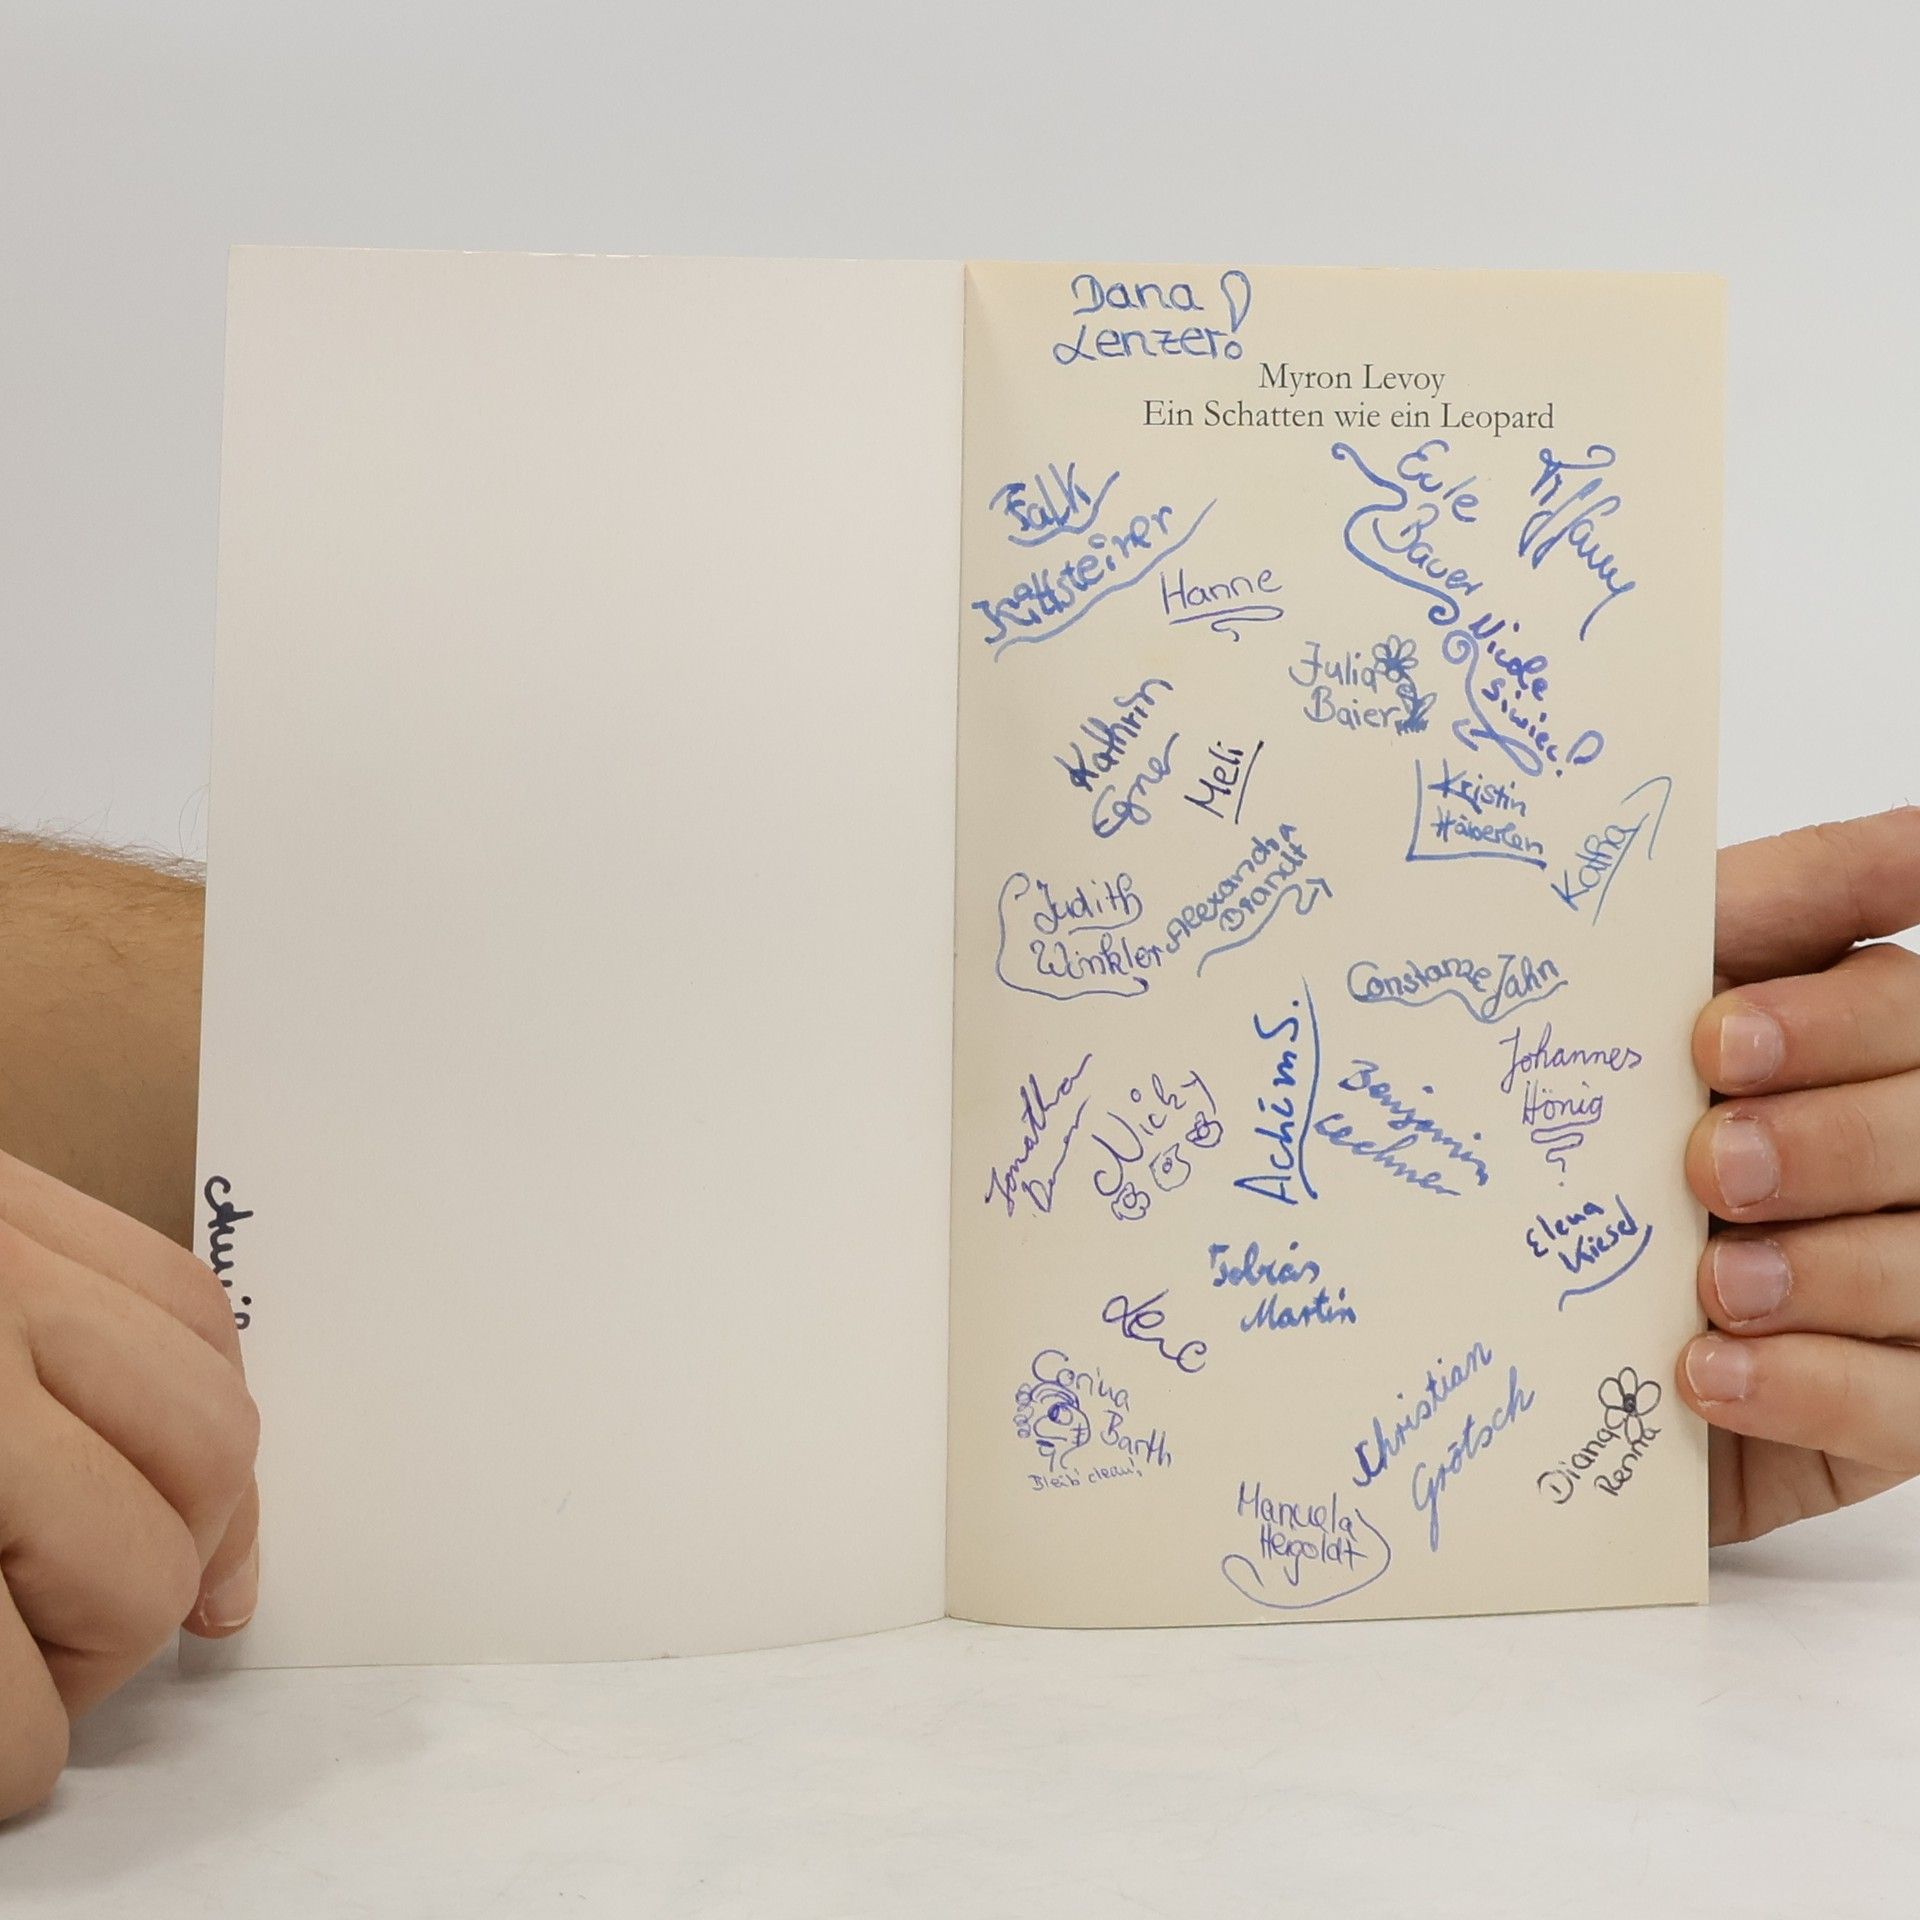 Dana
Lenzer!
Myron Levoy
Ein Schatten wie ein Leopard
Falk
Eule
Bauer
Tiffany
Hanne
Julia
Baier
Nicole
Siwiec!
Kathrin
Egner
Meli
Kristin
Häberlen
Katha
Judith
Winkler
Alexandra
Brandt
Constanze Jahn
Achim S.
Johannes
Hönig
Jonathan
Nicky
Benjamin
Lechner
Elena
Kiesel
Tobias
Martin
Lene
Corina
Barth
Bleib' clean!
Christian
Grötsch
Diana
Renna
Manuela
Hergoldt